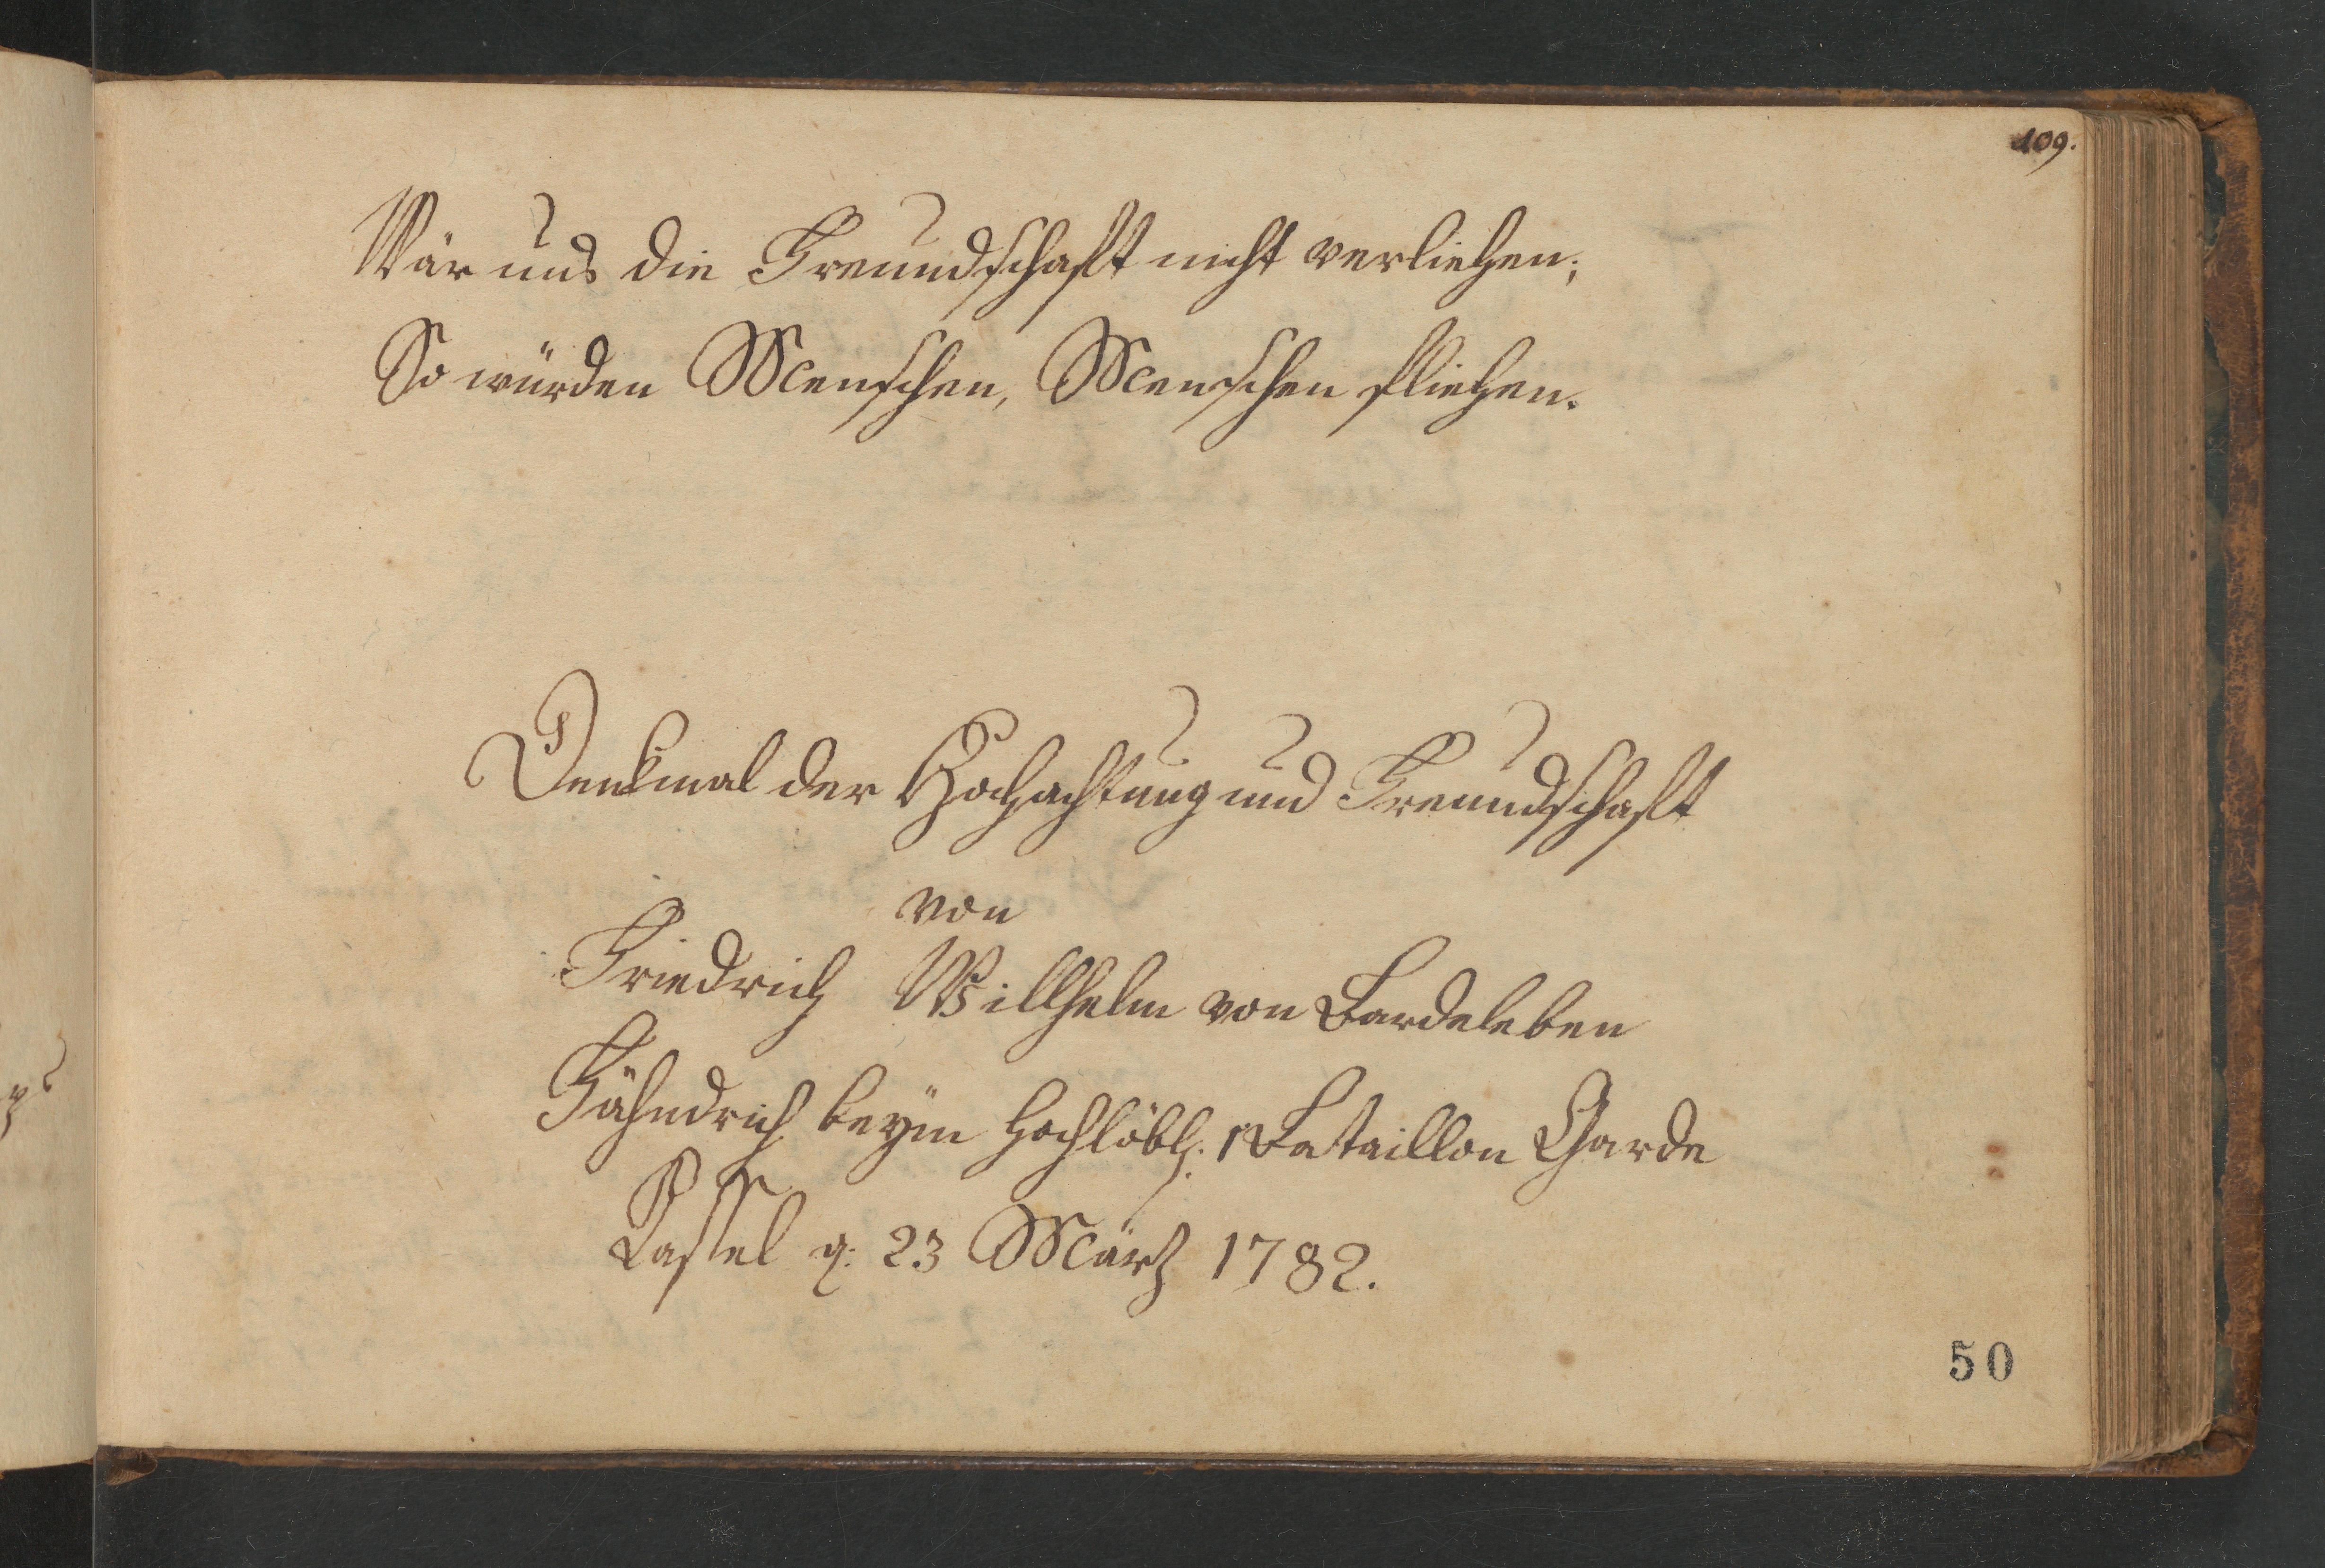 109.
Wär uns die Freundschaft nicht verliehen;
So würden Menschen, Menschen fliehen.
Denkmal der Hochachtung und Freundschaft
von
Friedrich Willhelm von Bardeleben
Fähndrich beÿm Hochlöbl: 1 Bataillon Garde
Cassel d: 23 März 1782.
50